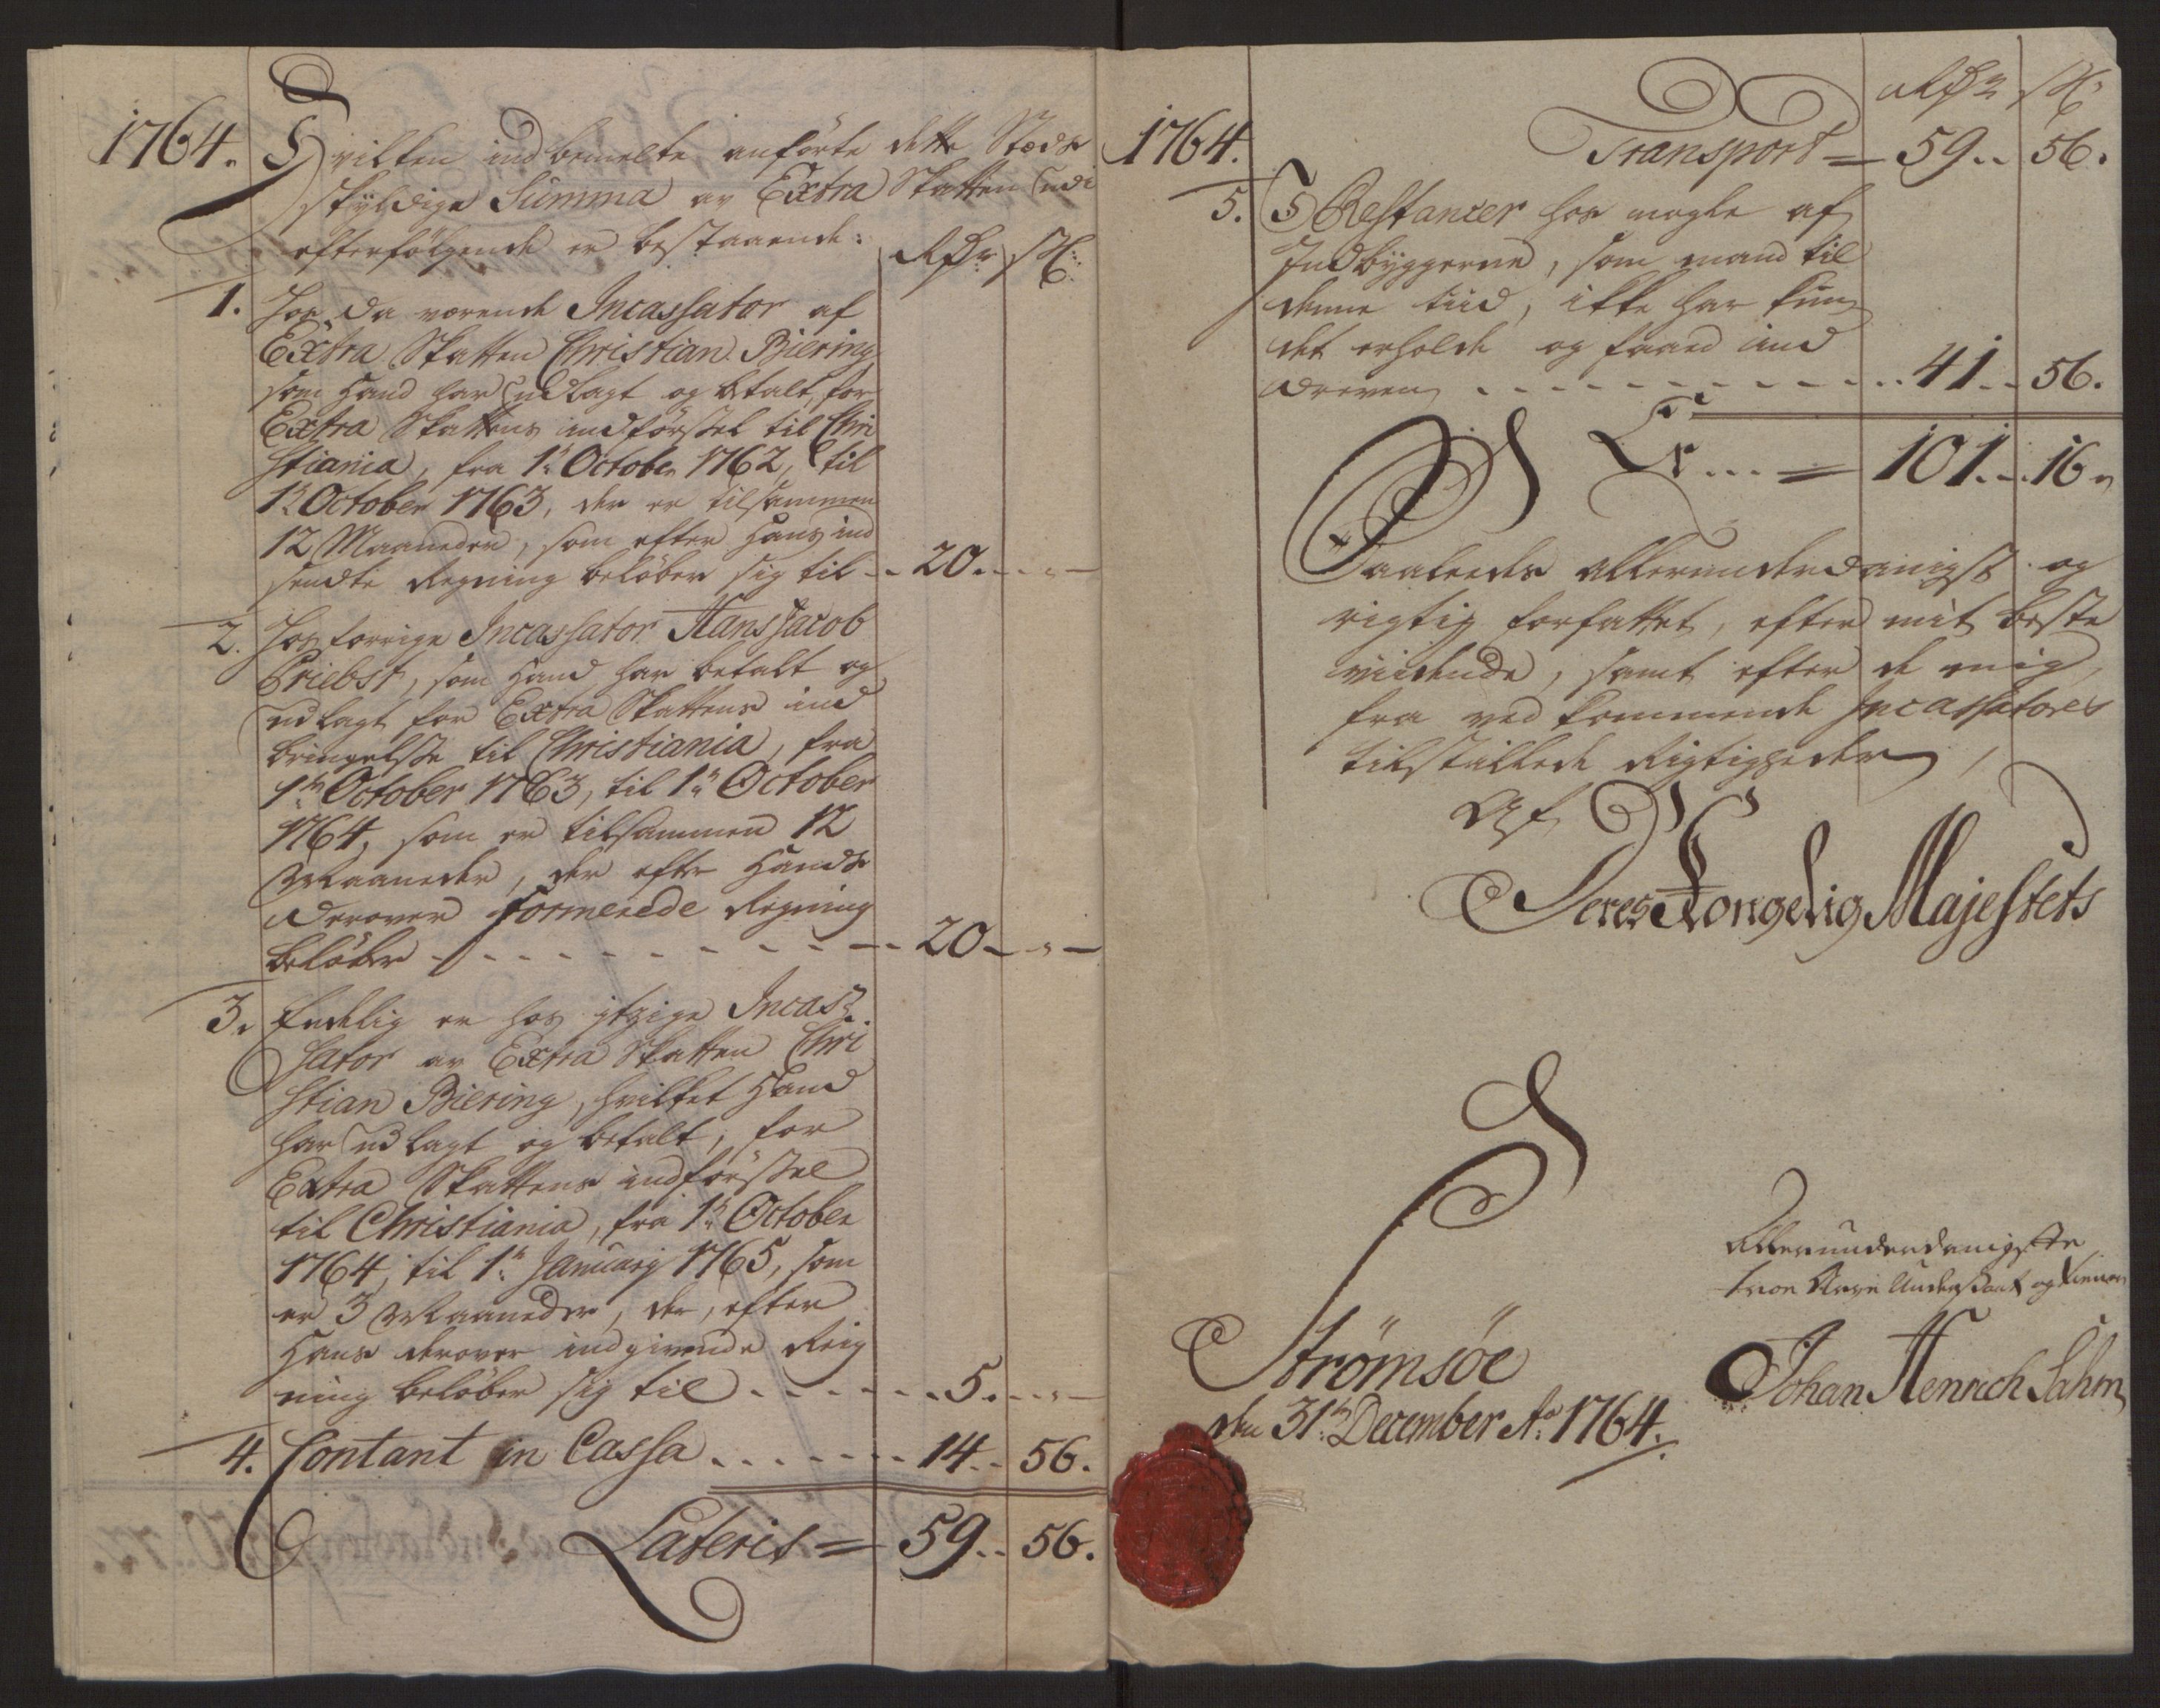 1764.
Hvilken indbemelte anförte dette Stæds
skyldige Summa av Extra Skatten udi
efterfölgende er bestaaende:
Rdr ß
1. Hos da værende Incassator af
Extra Skatten Christian Biering
som Hand har udlagt og betalt, for
Extra Skattens indförssel til Chri
stiania, fra 1te October 1762, til
1te October 1763, der er tilsammen
12 Maaneder, som efter Hans ind
sendte Regning belöber sig til -- 20. - „ -
2. Hos forrige Incassator Hans Jacob
Priebst, som Hand har betalt og
udlagt for Extra Skattens ind
bringelsse til Christiania, fra
1te October 1763, til 1te October
1764, som er tilsammen 12
Maaneder, der efter Hands
derover formerede Regning
belöber - - - - - - - - 20 - „ -
3. Endelig er hos itzige Incas-
sator av Extra Skatten Chri
stian Biering, hvilket Hand
har udlagt og betalt, for
Extra Skattens indförssel
til Christiania, fra 1te October
1764, til 1te Januarj 1765, som
er 3 Maaneder, der, efter
Hans derover indgivende Reig
ning belöber sig til - - - - - - 5. - „ -
4. Contant in Cassa . . . . . . . 14 .. 56.
Lateris = 59 .. 56.
1764.
Rdr ß
Transport = 59 .. 56.
5. I Restancer hos nogle af
Indbyggerne, som mand til
denne tiid, ikke har kun
det erholde og faaed ind
dreven - - - - - - - - - - 41 .. 56.
Er ... = 101 .. 16 „
Saaledes allerunderdanigst og
rigtig forfattet, efter mit beste
viidende, samt efter de mig,
fra vedkommende Incassatores
tilstillede Rigtigheder /
Af
Deres Kongelig Majestets
Strömsöe
den 31te December Ao 1764.
Allerunderdanigste
troe Arve Undersaat og tiener
Johan Henrich Sahm